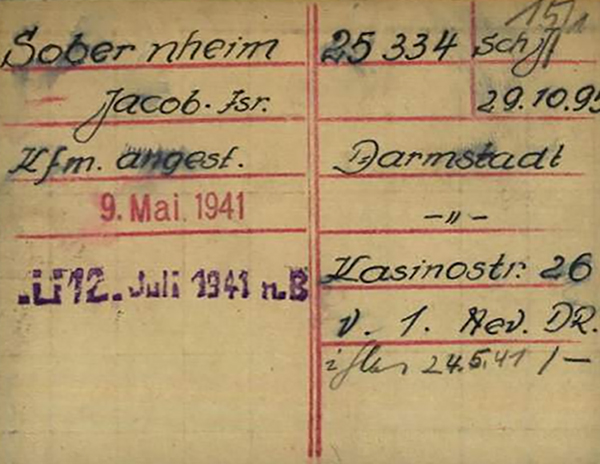 15/1
Sobernheim 25 334 Sch JJ
Jacob. Isr. 29.10.95
Kfm. angest. Darmstadt
9. Mai 1941 -"-
12. Juli 1941 n.B Kasinostr. 26
v. 1. Nev. DR.
24.5.41 /-